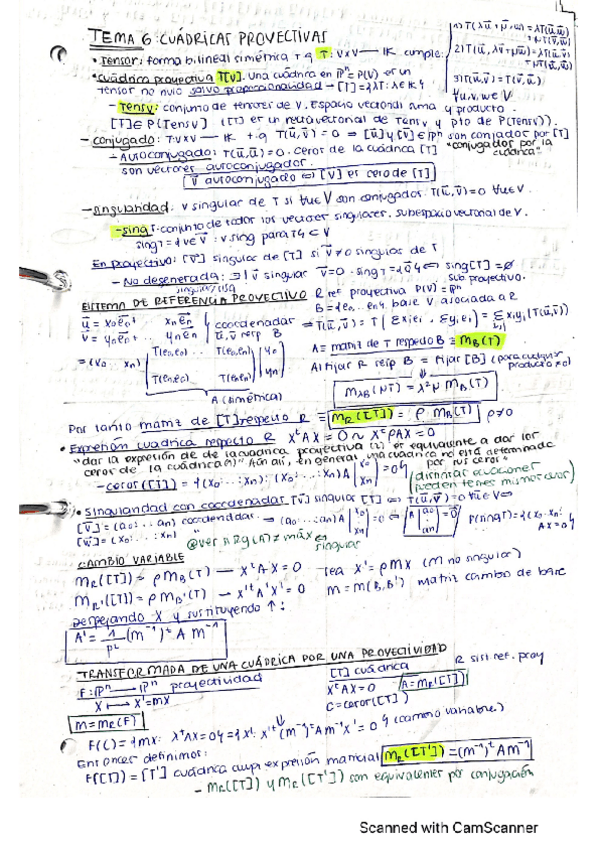 TEMA 6: CUÁDRICAS PROYECTIVAS
• Tensor: forma bilineal simétrica T q T: V×V → K cumple:
1) T(λū + μv̄, w̄) = λT(ū,w̄)
+ μT(v̄,w̄)
2) T(ū, λv̄ + μw̄) = λT(ū,v̄)
+ μT(ū,w̄)
3) T(ū,v̄) = T(v̄,ū)
∀u,v,w ∈ V
• Cuádrica proyectiva [T]. Una cuádrica en ℙⁿ = P(V) es un
tensor no nulo salvo proporcionalidad → [T] = {λT: λ ∈ K}
- Tens V: conjunto de tensores de V. Espacio vectorial suma y producto.
[T] ∈ P(Tens V) ([T] es un recta vectorial de Tens V y pto de P(Tens V)).
- conjugado: T: V×V → K t q T(ū,v̄) = 0 ⇒ [ū] y [v̄] ∈ ℙⁿ son conjados por [T]
"conjugados por la cuádrica"
- Autoconjugado: T(ū,ū) = 0. Ceros de la cuádrica [T]
son vectores autoconjugados.
v̄ autoconjugado ⇔ [v̄] es cero de [T]
- singularidad: v singular de T si ∀u∈V son conjugados. T(ū,v̄)=0 ∀u∈V.
- sing T: conjunto de todos los vectores singulares. Subespacio vectorial de V.
sing T = {v∈V: v sing para T} ⊂ V
En proyectivo: [v̄] singular de [T] si v̄ ≠ 0 singular de T
- No degenerada: ∃! v̄ singular v̄ = 0. sing T = {0̄} ⇔ sing[T] = ∅
sub proyectivo.
SISTEMA DE REFERENCIA PROYECTIVO R ref proyectiva P(V) = ℙⁿ
B = {e₀, .. eₙ} base V asociada a R
ū = x₀e₀ + xₙeₙ
v̄ = y₀e₀ + yₙeₙ
coordenadas ū, v̄ resp B ⇒ T(ū,v̄) = T(Σxᵢeᵢ, Σyⱼeⱼ) = Σxᵢyⱼ T(ū,v̄)
= (x₀ .. xₙ)
T(e₀,e₀) .. T(e₀,eₙ) y₀
T(eₙ,e₀) T(eₙ,eₙ) yₙ
A (simétrica)
A = matriz de T respecto B = M_B(T)
Al fijar R resp B = fijar [B] (para cualquier producto ≠ 0)
M_λB(μT) = λ²μ M_B(T)
Por tanto matriz de [T] respecto R = M_R([T]) = ρ M_B(T) ρ≠0
• Expresión cuádrica respecto R XᵗAX = 0 ~ XᵗρAX = 0
"dar la expresión de la cuádrica proyectiva es equivalente a dar los
ceros de la cuádrica". Aún así, en general, una cuádrica no está determinada
por sus ceros"
- ceros([T]) = {(x₀: .. :xₙ): (x₀: .. :xₙ) A (x₀ xₙ) = 0}
(distintas ecuaciones pueden tener mismos ceros)
• singularidad con coordenadas [v̄] singular [T] ⇔ T(ū,v̄) = 0 ∀ū∈V ⇔
[v̄] = (a₀: .. :aₙ) coordenadas
[ū] = (x₀: .. :xₙ)
→ (a₀: .. :aₙ) A (x₀ xₙ) = 0 ⇔ A (a₀ aₙ) = 0
P(sing T) = {(x₀: .. xₙ: AX = 0}
@ver si Rg(A) ≠ máx ⇔ singular
CAMBIO VARIABLE
M_R([T]) = ρM_B(T) — XᵗAX = 0 sea X' = ρMX (M no singular)
M_R'([T]) = ρM_B'(T) — X'ᵗA'X' = 0 M = M(B,B') matriz cambio de base
Despejando X y sustituyendo ↑:
A' = 1/ρ² (M⁻¹)ᵗ A M⁻¹
TRANSFORMADA DE UNA CUÁDRICA POR UNA PROYECTIVIDAD
F: ℙⁿ → ℙⁿ proyectividad
X ↦ X' = MX
M = M_R(F)
[T] cuádrica R sist ref. proy
XᵗAX = 0 A = M_R([T])
C = ceros([T])
F(C) = {MX: XᵗAX = 0} = {X': X'ᵗ(M⁻¹)ᵗAM⁻¹X' = 0} (cambio variable)
Entonces definimos:
F([T]) = [T'] cuádrica cuya expresión matricial M_R([T']) = (M⁻¹)ᵗAM⁻¹
- M_R([T]) y M_R([T']) son equivalentes por conjugación
Scanned with CamScanner